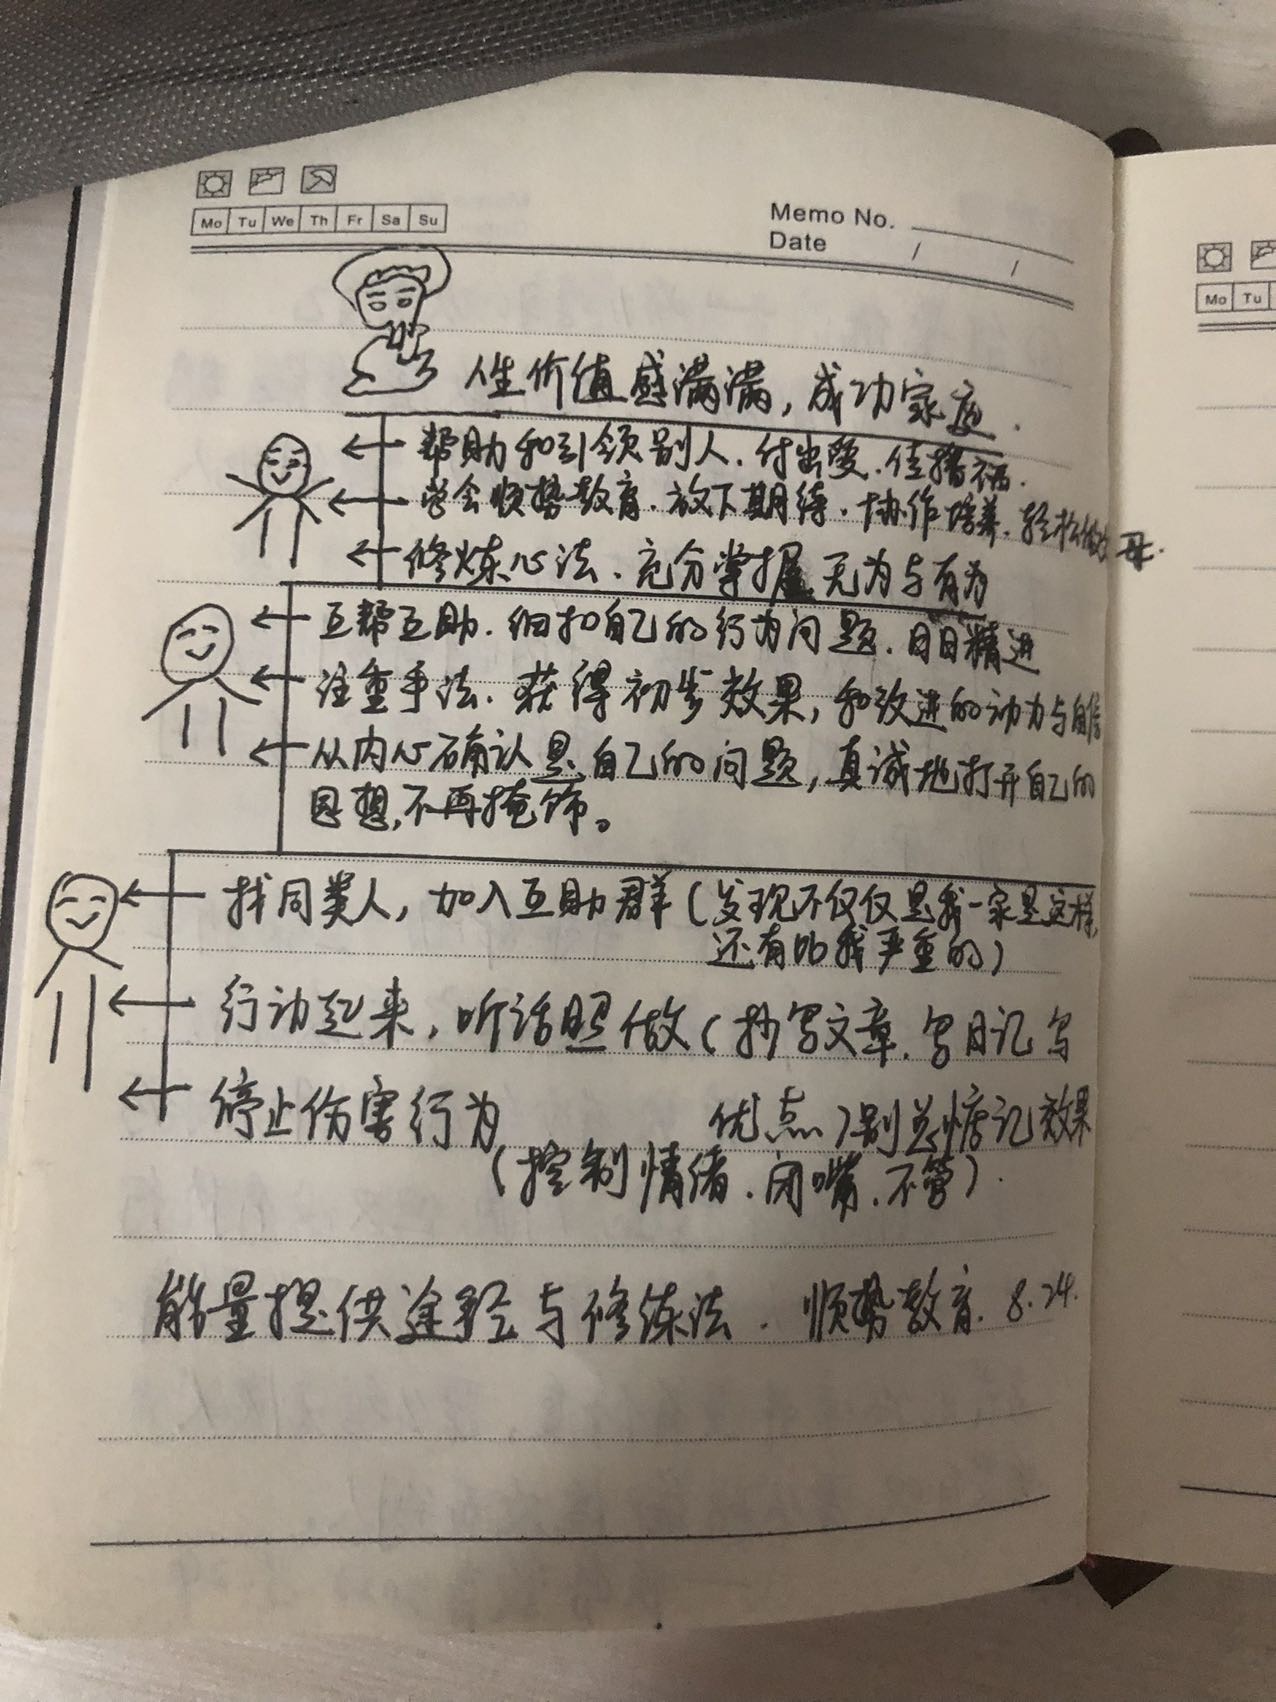 Mo Tu We Th Fr Sa Su
Memo No.
Date / /
人生价值感满满，成功家庭.
帮助和引领别人.付出爱.传播福.
学会顺势教育.放下期待.协作培养.轻松做父母.
修炼心法、充分掌握无为与有为
互帮互助.细扣自己的行为问题.日日精进
注重手法.获得初步效果，和改进的动力与自信
从内心确认是自己的问题，真诚地打开自己的
思想,不再掩饰。
找同类人，加入互助群(发现不仅仅是我一家是这样,
还有比我严重的)
行动起来，听话照做(抄写文章.写日记写
优点)别总惦记效果
停止伤害行为
(控制情绪.闭嘴.不管).
能量提供途径与修炼法.顺势教育.8.24.
Mo Tu